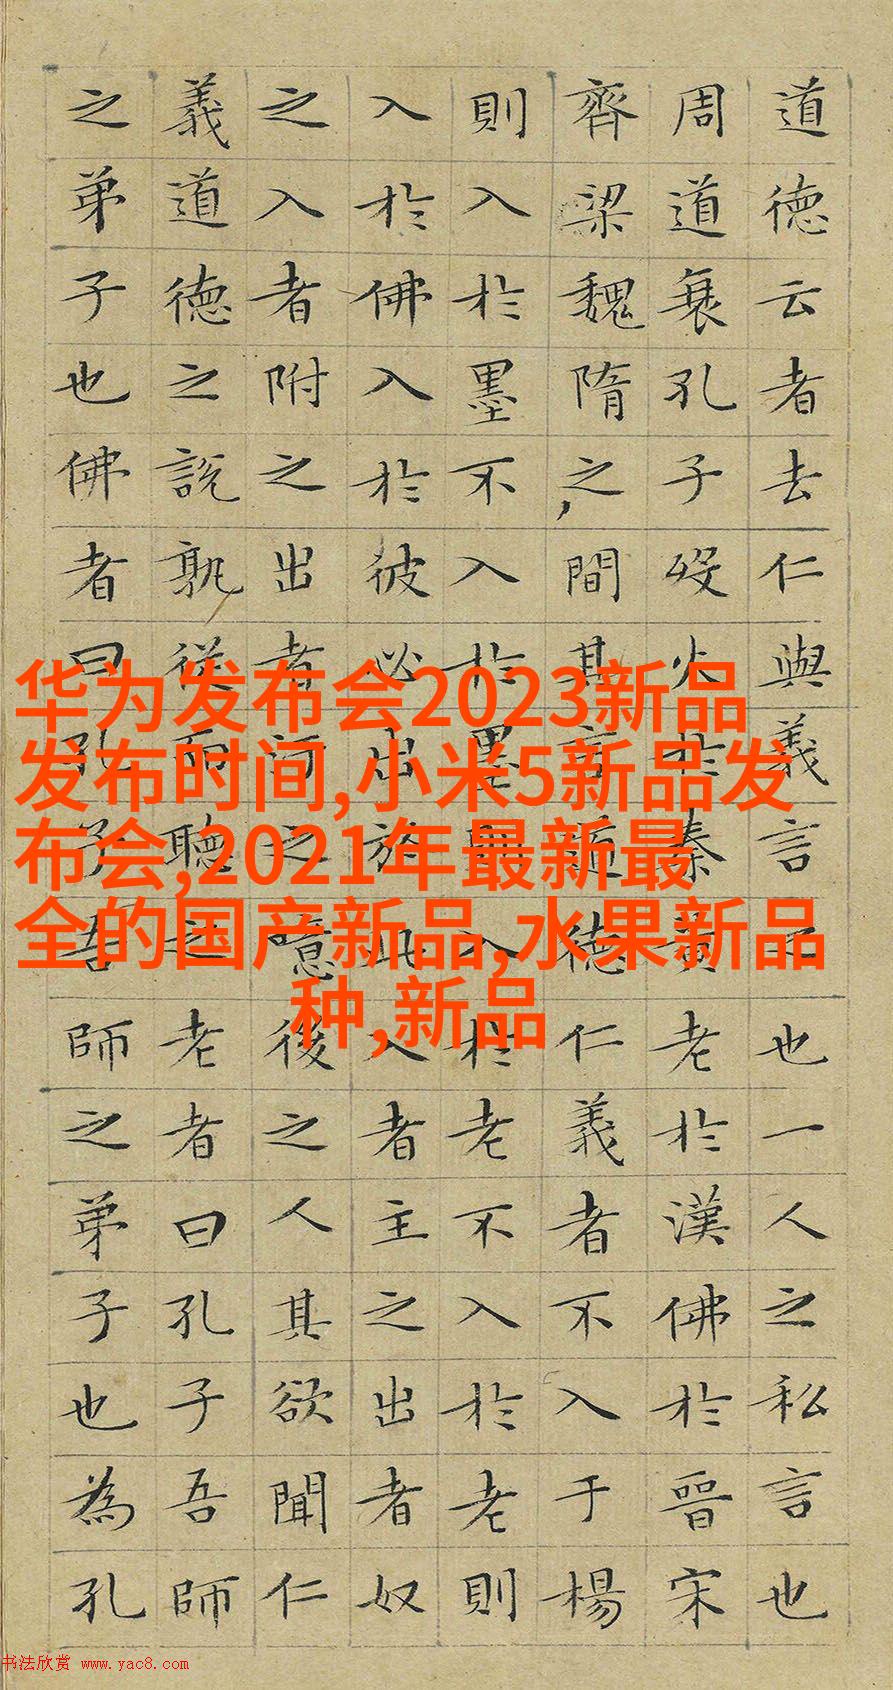 道德云者去仁與義言之也一人之私言也
周道衰孔子歿火於秦黃老於漢佛於晉宋
齊梁魏隋之間其言道德仁義者不入于楊
則入於墨不入於墨則入於老不入於老則
入於佛入於彼必出於此入者主之出者奴
之入者附之出者汙之噫後之人其欲聞仁
義道德之說孰從而聽之老者曰孔子吾師
之弟子也佛者曰孔子吾師之弟子也為孔
华为发布会2023新品
发布时间,小米5新品发
布会,2021年最新最
全的国产新品,水果新品
种,新品
书法欣赏 www.yac8.com